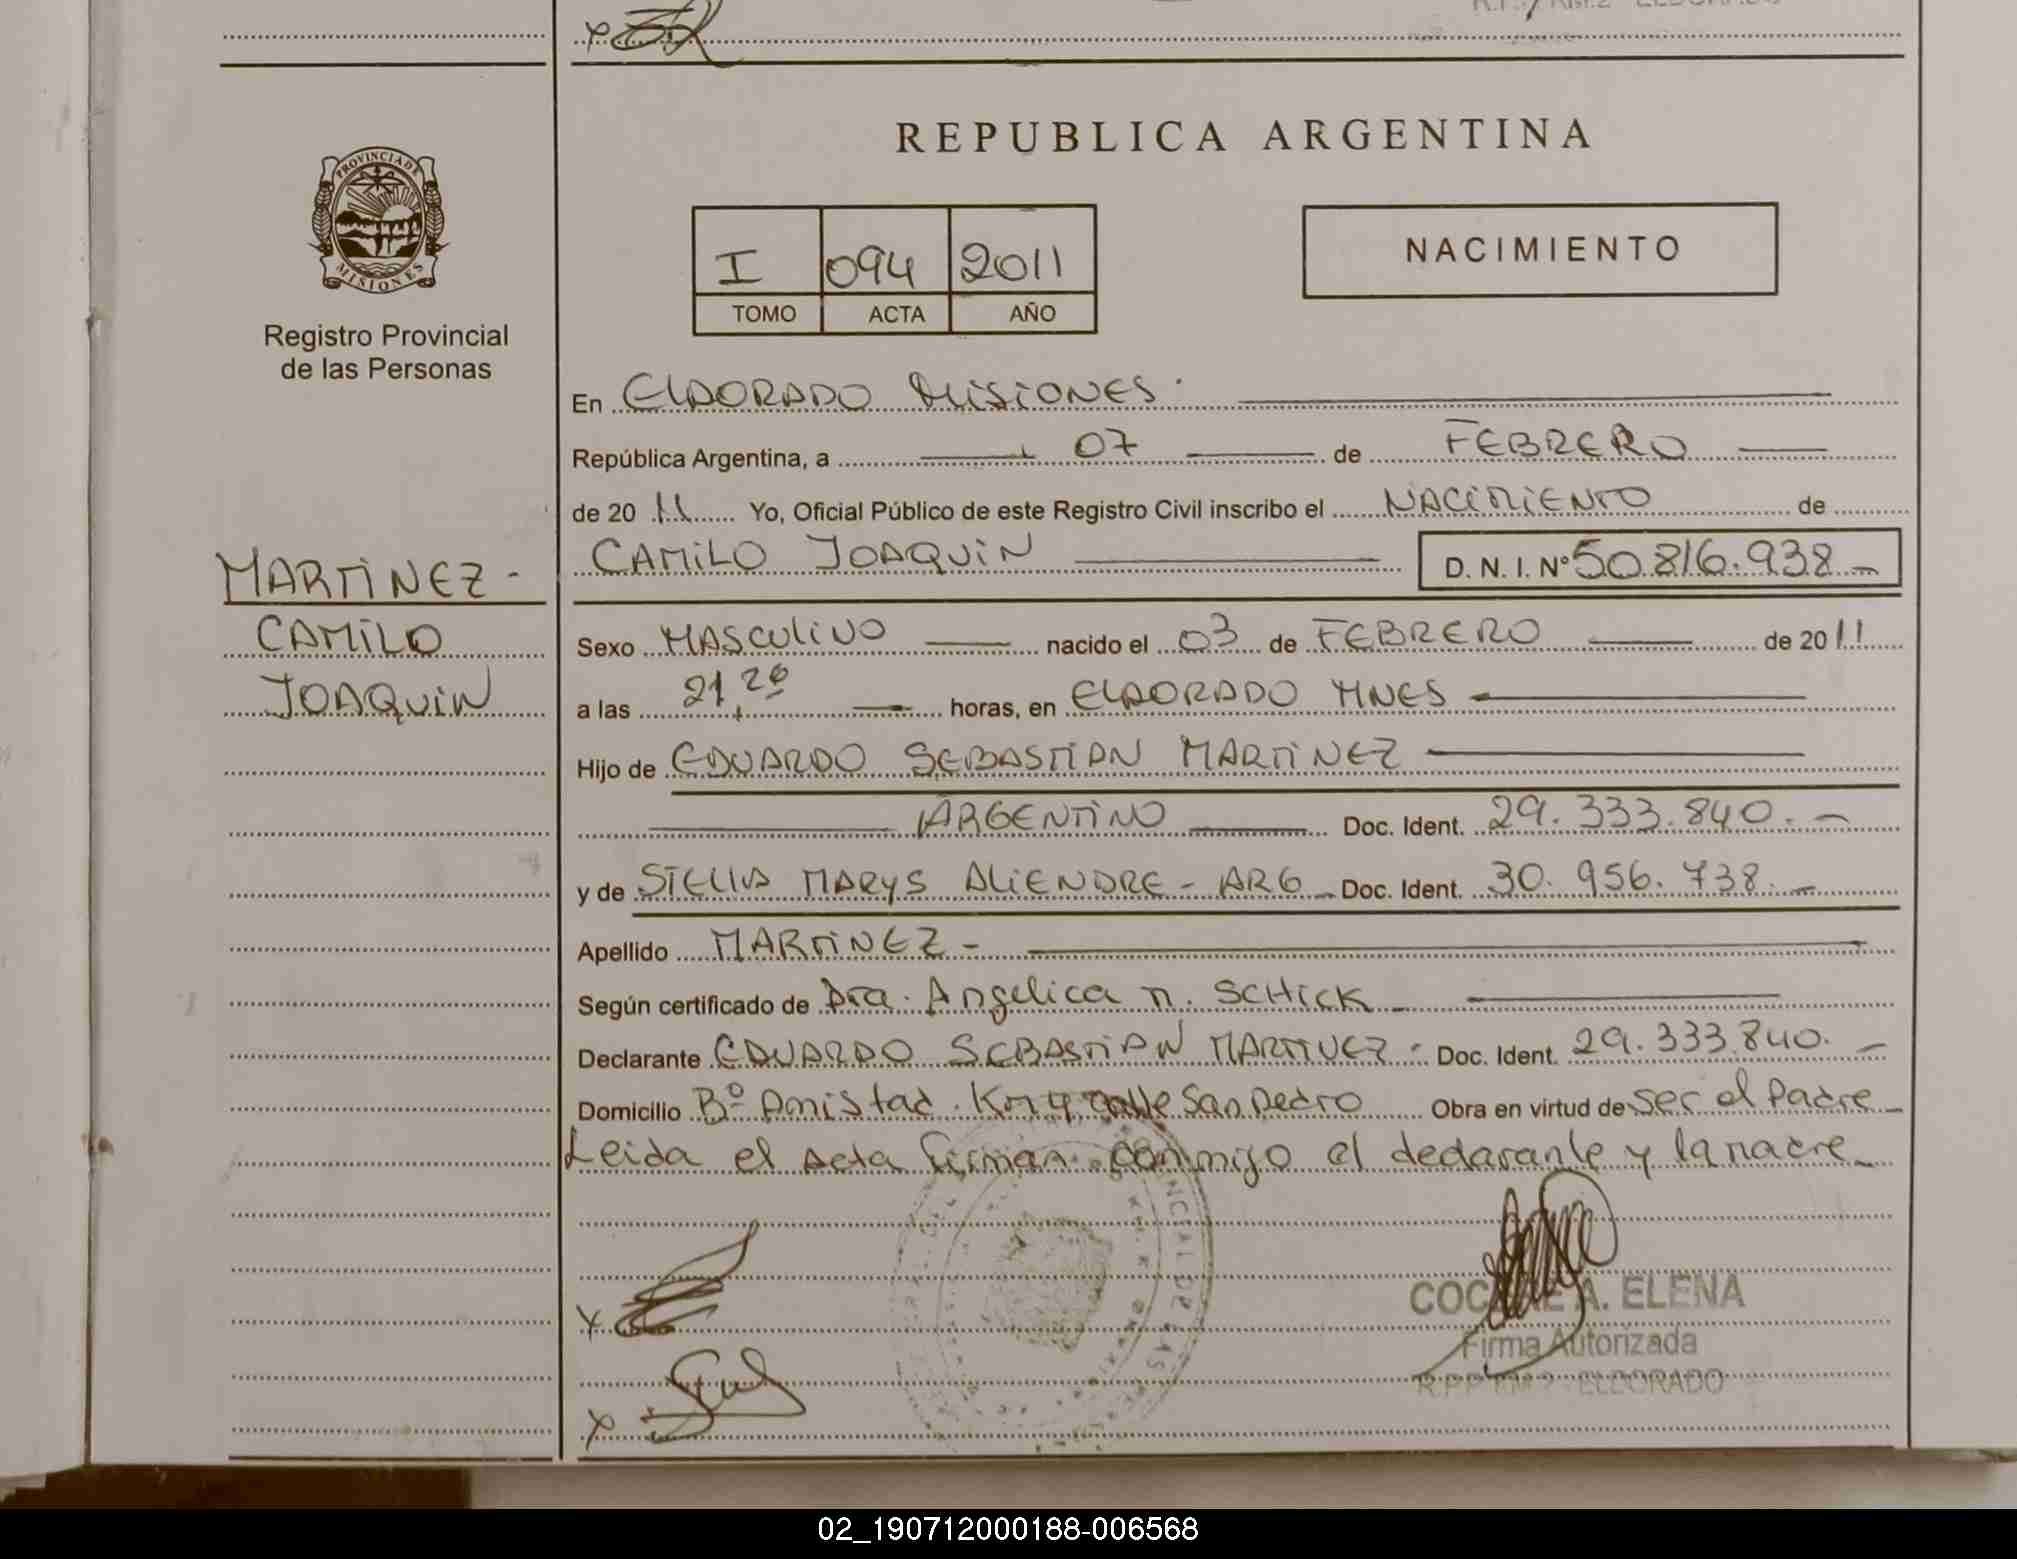 REPUBLICA ARGENTINA
PROVINCIA DE
MISIONES
Registro Provincial
de las Personas
I 094 2011
TOMO ACTA AÑO
NACIMIENTO
En ELDORADO MISIONES.
República Argentina, a 07 de FEBRERO
de 20 11 Yo, Oficial Público de este Registro Civil inscribo el NACIMIENTO de
CAMILO JOAQUIN D. N. I. Nº 50.816.938-
MARTINEZ -
CAMILO
JOAQUIN
Sexo MASCULINO nacido el 03 de FEBRERO de 20 11
a las 21,20 horas, en ELDORADO MNES
Hijo de EDUARDO SEBASTIAN MARTINEZ
ARGENTINO Doc. Ident. 29.333.840.-
y de STELLA MARYS ALIENDRE - ARG - Doc. Ident. 30.956.738.-
Apellido MARTINEZ -
Según certificado de Dra. Angelica n. SCHICK -
Declarante EDUARDO SEBASTIAN MARTINEZ - Doc. Ident. 29.333.840.-
Domicilio Bº Amistad. Km 4 calle San Pedro Obra en virtud de ser el Padre -
Leida el Acta firman conmigo el declarante y la madre -
A. ELENA
Firma Autorizada
ELDORADO
02_190712000188-006568